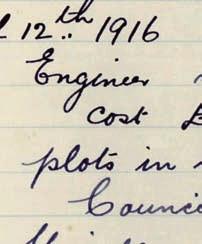 12th 1916
Engineer
cost £
plots in
Counci